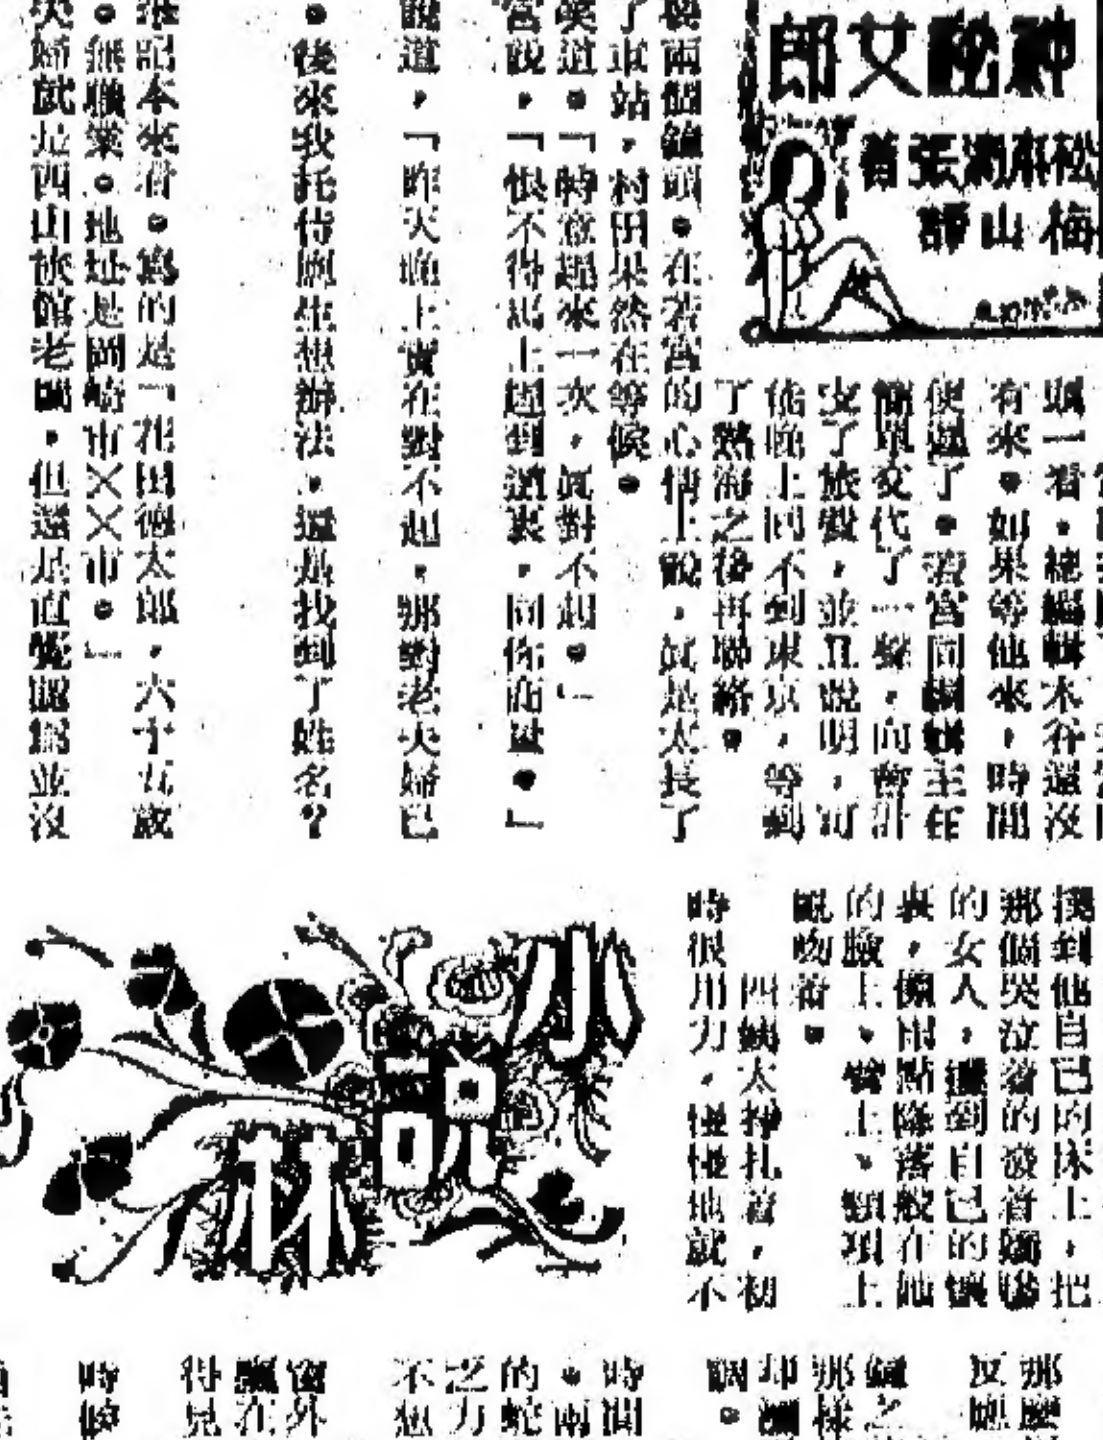 神秘女郎
松本清張著
梅山譯
瞋一看。總編輯木谷還沒
有來。如果等他來,時間
便遲了。若宮同編輯主任
簡單交代了一聲,向會計
支了旅費,並且說明,可
能晚上回不到東京,等到
了熱海之後再聯絡。
兩個鐘頭。在若宮的心情上說,真是太長了
了車站,村田果然在等候。
笑道。「特意趕來一次,真對不起。」
宮說,「恨不得馬上趕到這裏,向你商量。」
說道,「昨天晚上實在對不起,那對老夫婦已
。後來我托侍應生想辦法,還是找到了姓名?
登記本來看。寫的是「花田德太郎,六十五歲
。無職業。地址是岡崎市××市。」
夫婦就是西山旅館老闆,但還是直覺
並沒
撲到他自己的床上,把
那個哭泣着的發着
的女人,
到自己的懷
裏,像雨點降落般在她
的臉上、臂上、頸項上
吻着。
四姨太掙扎着,初
時很用力,慢慢地就不
小說林
那麼
反應
之
那樣
却
。
時間
。兩
的蛇
之力
不
窗外
飄在
得見
時候